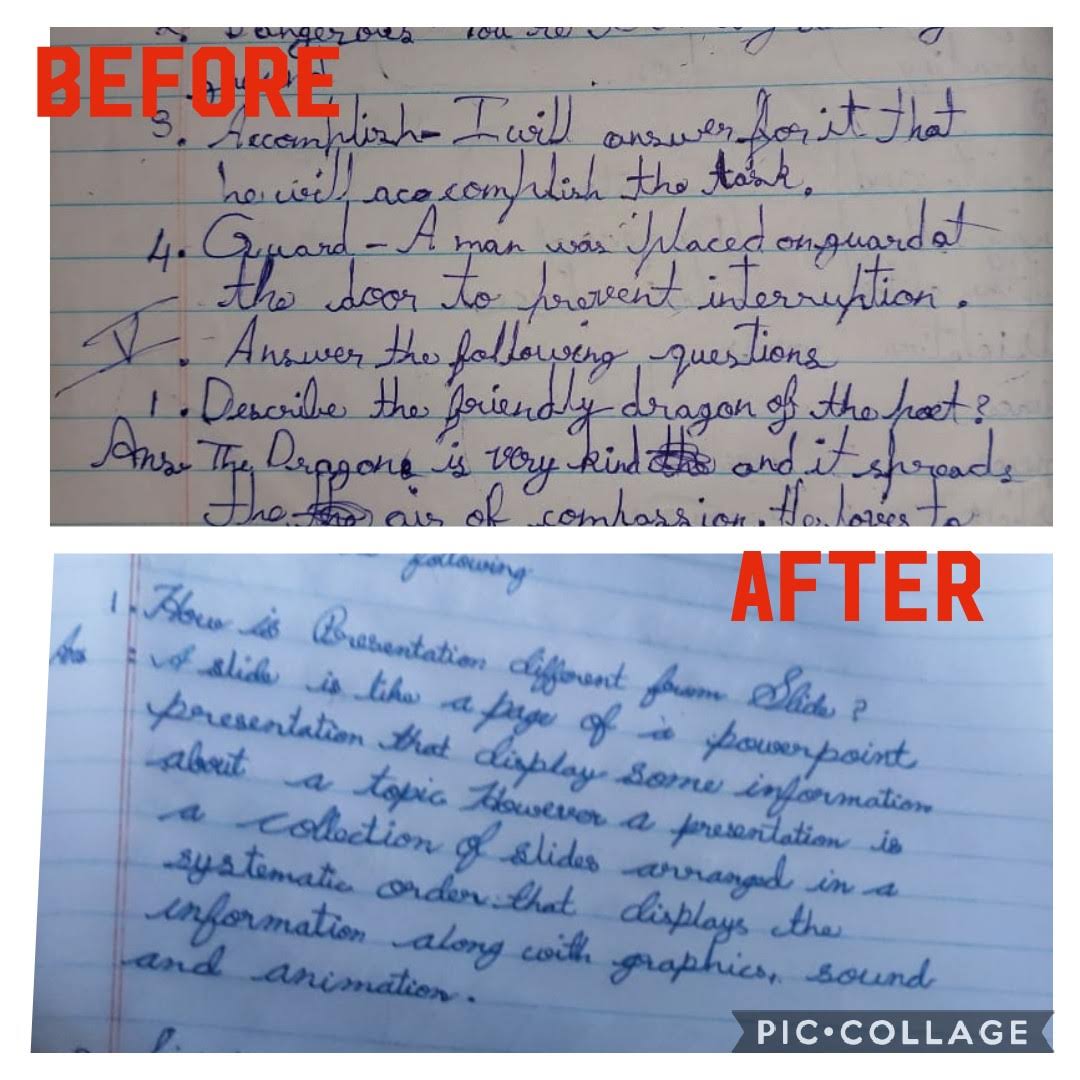 BEFORE
2. Dangerous You're
3. Accomplish- I will answer for it that
he will accomplish the task.
4. Guard - A man was placed on guard at
the door to prevent interruption.
V. Answer the following questions
1. Describe the friendly dragon of the poet?
Ans. The Dragon is very kind and it spreads
the air of compassion. He loves to
AFTER
following
1. How is Presentation different form Slide?
Ans : A slide is like a page of a powerpoint
presentation that display some information
about a topic However a presentation is
a collection of slides arranged in a
systematic order that displays the
information along with graphics, sound
and animation.
PIC•COLLAGE